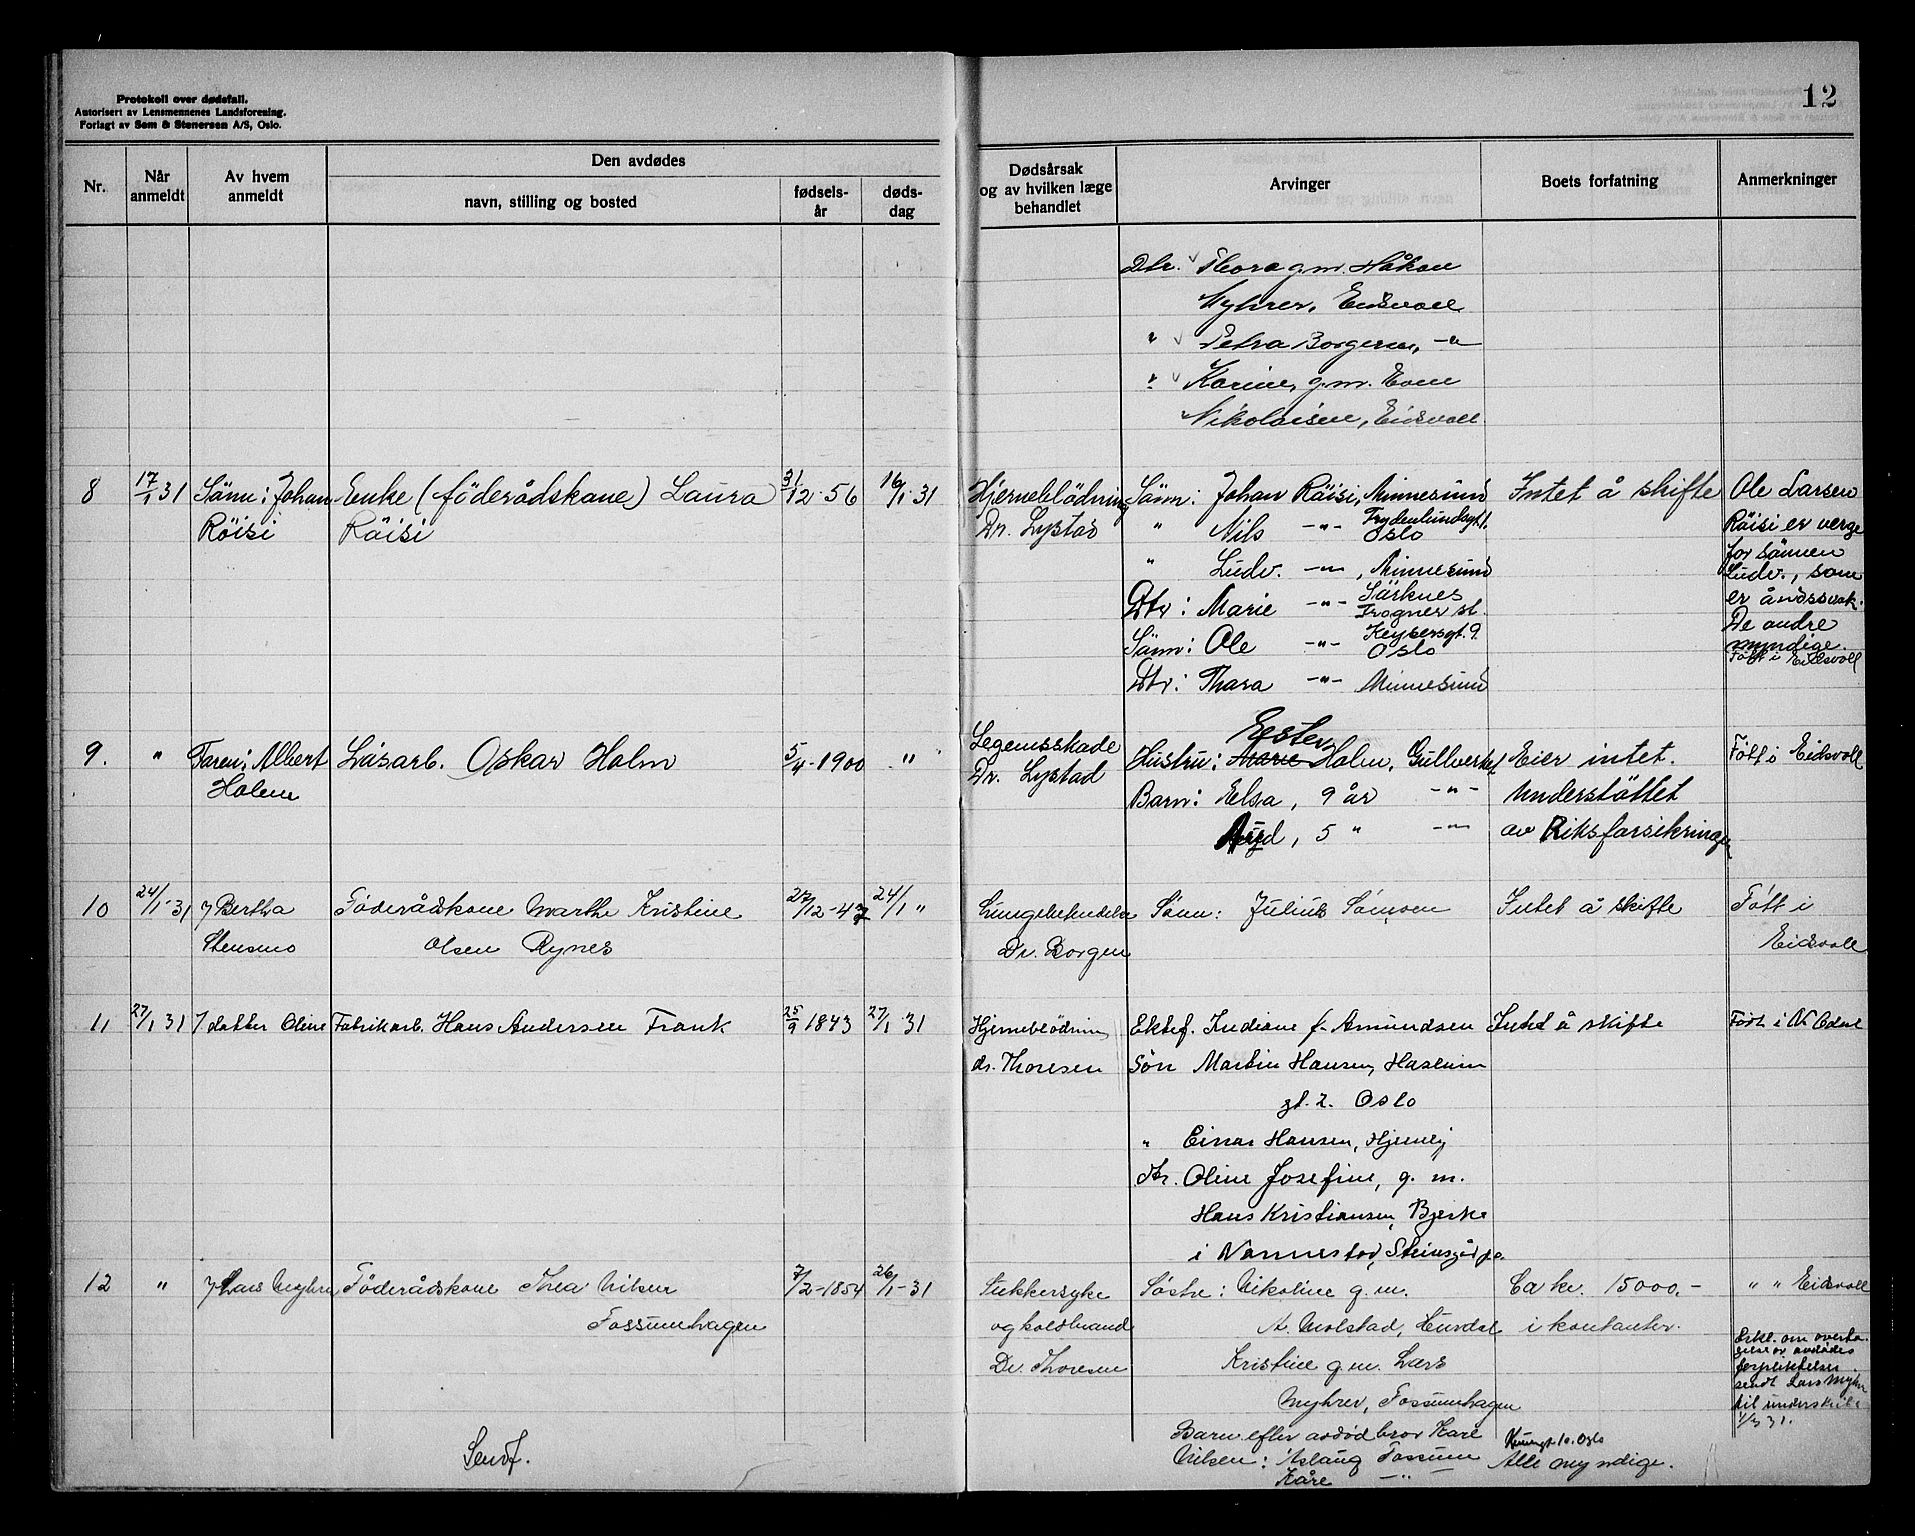 Protokoll over dødsfall.
Autorisert av Lensmennenes Landsforening.
Forlagt av Sem & Stenersen A/S, Oslo.
12
Nr.
Når anmeldt
Av hvem anmeldt
Den avdødes
navn, stilling og bosted
fødsels-år
døds-dag
Dødsårsak og av hvilken læge behandlet
Arvinger
Boets forfatning
Anmerkninger
Dtr. Thora g.m. Håkon
Myhrer, Eidsvoll
" Petra Borgersen, -"-
" Karine, g.m. Even
Nikolaisen, Eidsvoll
8
17/1 31
Sönn: Johan
Röisi
Enke (föderådskone) Laura
Röisi
31/12-56
16/1-31
Hjerneblödning
Dr. Lystad
Sönn: Johan Röisi, Minnesund
" Nils -"- Frydenlundsgt. Oslo
" Ludv. -"-, Minnesund
Dtr: Marie -"- Särknes Trogner st.
Sönn: Ole -"- Keysersgt. 9. Oslo
Dtr: Thora -"- Minnesund
Intet å skifte
Ole Larsen
Röisi er verge
for sönnen
Ludv., som
er åndssvak.
De andre
myndige.
Föft i Eidsvoll
9.
"
Faren: Albert
Holm
Lösarb. Oskar Holm
5/4-1900
"
Legemsskade
Dr. Lystad
Ester
Hustru: Marie Holm, Gullverket
Barn: Elsa, 9 år -"-
Aud, 5 " -"-
Eier intet.
Understöttet
av Riksforsikringen
Föft i Eidsvoll
10
24/1-31
/ Bertha
Stensmo
Föderådkone Marthe Kristine
Olsen Rynes
27/12-47
24/1 "
Lungebetendelse
Dr. Borgen
Sönn: Julius Sönsen
Intet å skifte
Föft i
Eidsvoll
11
27/1 31
/ datter Oline
Fabrikarb. Hans Andersen Frank
25/9 1843
27/1 31
Hjerneblödning
dr. Thoresen
Ektef. Indiane f. Amundsen
Sön Martin Hansen, Haslum
gt. 2. Oslo
" Einar Hansen, Hjemlig
Dtr. Oline Josefine, g. m.
Hans Kristiansen, Bjerke
i Nannestad, Steinsgård p.a.
Intet å skifte
Född i N. Odal
12
"
/ Lars Myhrer
Föderådkone Thea Nilsen
Fossumhagen
7/2-1854
26/1-31
Sukkersyke
og koldbrand
Dr. Thoresen
Söstre: Nikoline g.m.
A. Molstad, Hurdal
Kristine g.m. Lars
Myhrer, Fossumhagen
Barn efter avdöd bror Kare
Nilsen: Aslaug Fossum
Kåre -"-
Ca kr. 15000.-
i kontanter.
10. Oslo
Alle myndige.
" " Eidsvoll
Erkl. om overta-
gelse av avdödes
forpliktelser
sendt Lars Myhrer
til underskrift
1/3 31.
Sendt.